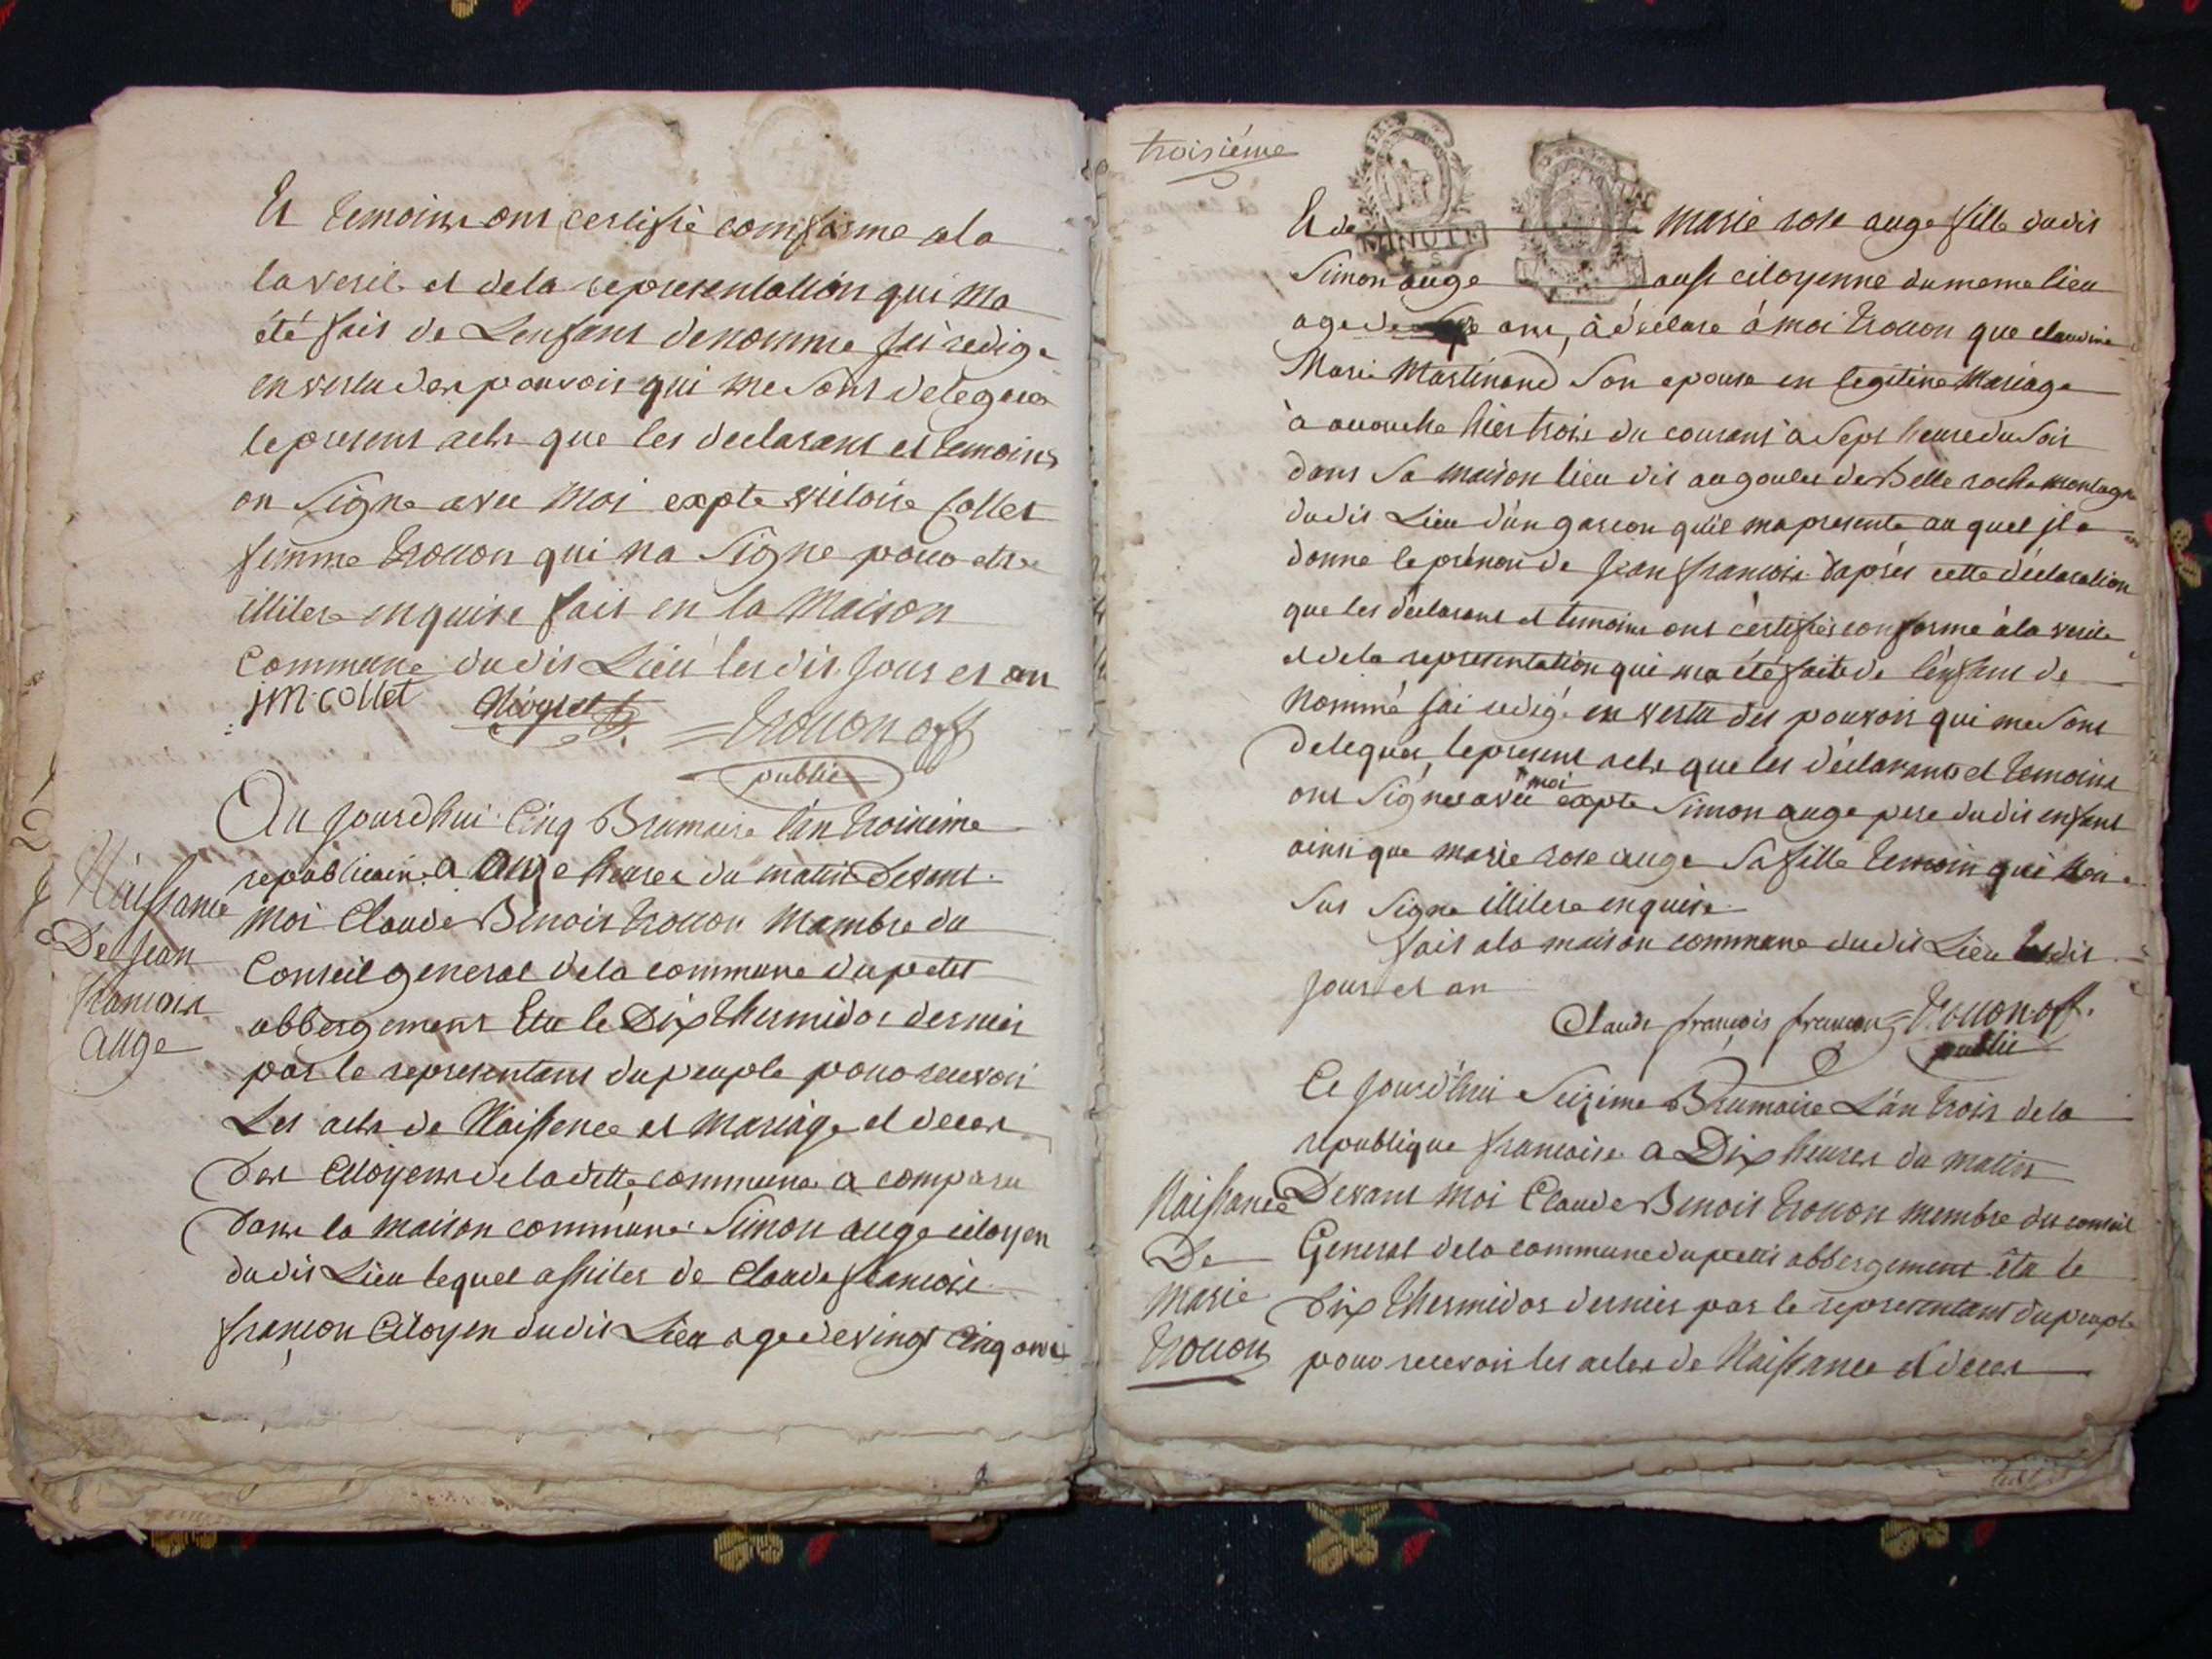 Et temoins ont certifié comforme a la
la verite et de la representation qui ma
été fait de Lenfant denomme jai redige
en vertu des pouvoir qui me sont delegues
le present acte que les declarant et temoins
on Signe avec Moi expte victoire Collet
femme trouon qui na Signe pour etre
illitere enquise fait en la Maison
Commune dudit Lieu lesdit jour et an
jm collet
trouon off
public
Au jourdhui Cinq Brumaire l'an troisieme
republicain a onze heures du matin Devant
Naissance
De Jean
francois
auge
moi Claude Benoit trouon Mambre du
Conseil general de la commune du petit
abbergement Elu le Dix thermidor dernier
par le representant du peuple pour recevoir
Les acte de Naissence et Mariage et deces
Des Citoyens de la dette commune a comparu
Dans la maison commune Simon auge citoyen
dudit Lieu lequel assiter de Claude francois
françon Citoyen dudit Lieu age de vingt Cinq ans
troisiéme
Et de Marie rose auge fille dudit
MINUTE
Simon auge aussi citoyenne du meme lieu
age de ans, à déclare à moi trouon que claudine
Marie Martinand Son epouse en legitime Mariage
à acouche hier trois du courant a Sept heure du Soir
dans Sa maison lieu dit au goulet de Belle roche montagne
dudit Lieu d'un garcon qu'il ma presente au quel il a
donne le prénom de jean francois d'aprés cette déclaration
que les déclarant et temoins ont certifiés conforme à la verite
et de la representation qui ma été faite de l'enfant de
Nommé jai redigé en vertu des pouvoir qui me Sont
delegués, le present acte que les déclarants et temoins
ont Signes avec moi expte Simon auge pere dudit enfant
ainsi que marie rose auge Sa fille temoin qui non
Sus Signe illitere enquise
fait a la maison commune dudit Lieu lesdit
jour et an
Claude françois françon trouon off.
public
Ce jourd'hui Seizime Brumaire L'an trois de la
republique francaise a Dix heures du matin
Naissance
De
Marie
trouon
Devant moi Claude Benoit trouon membre du conseil
General de la commune du petit abbergement élu le
Dix thermidor dernier par le representant du peuple
pour recevoir les actes de Naissance et deces